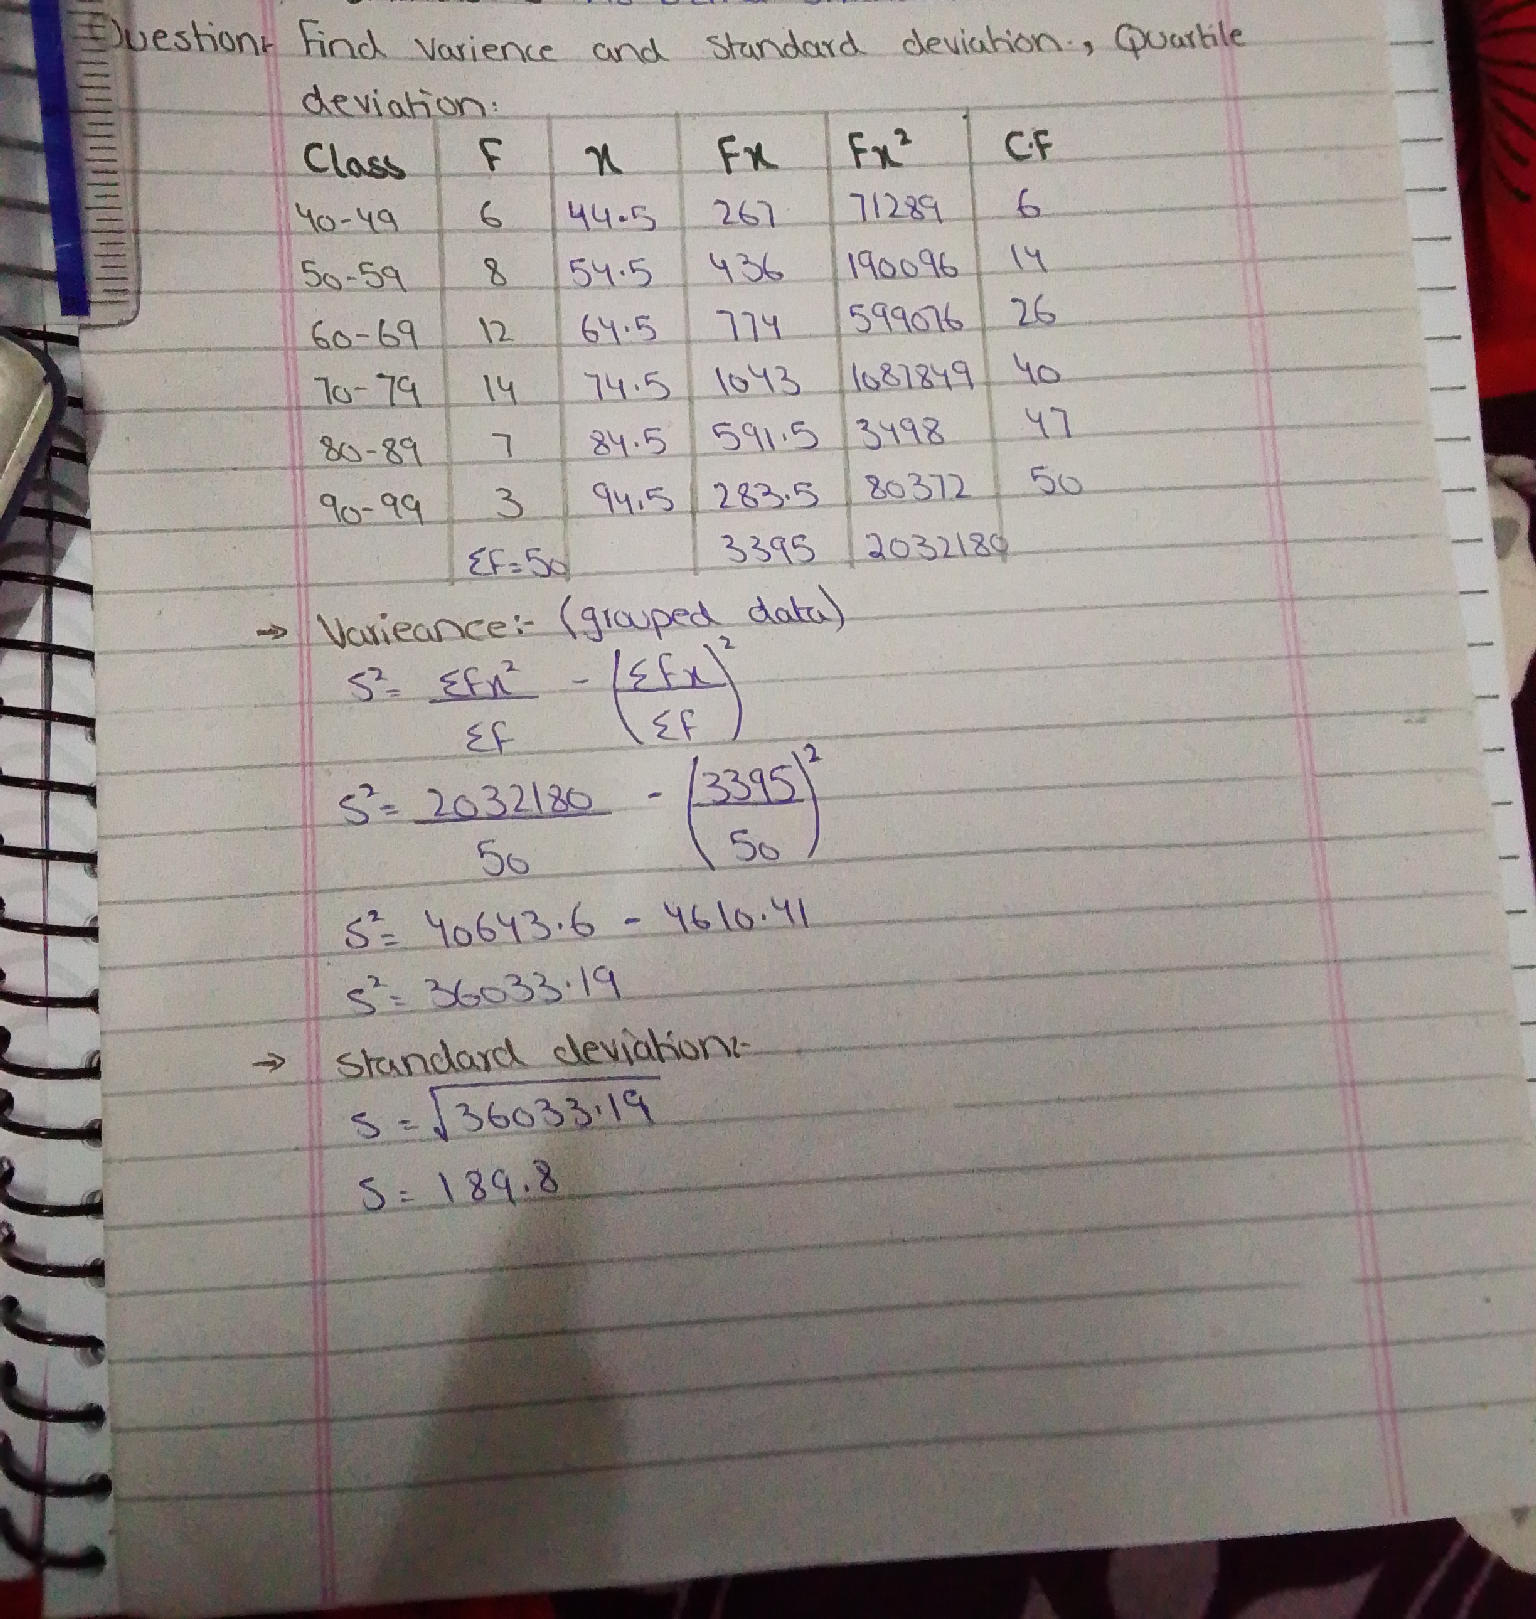 Question:- Find Varience and Standard deviation., Quartile
deviation:
Class F x Fx Fx² C.F
40-49 6 44.5 267 71289 6
50-59 8 54.5 436 190096 14
60-69 12 64.5 774 599076 26
70-79 14 74.5 1043 1087849 40
80-89 7 84.5 591.5 3498 47
90-99 3 94.5 283.5 80372 50
ΣF=50 3395 2032180
→ Varieance:- (grouped data)
S² = ΣFx²/ΣF - (ΣFx/ΣF)²
S² = 2032180/50 - (3395/50)²
S² = 40643.6 - 4610.41
S² = 36033.19
→ Standard deviation:-
S = √36033.19
S = 189.8